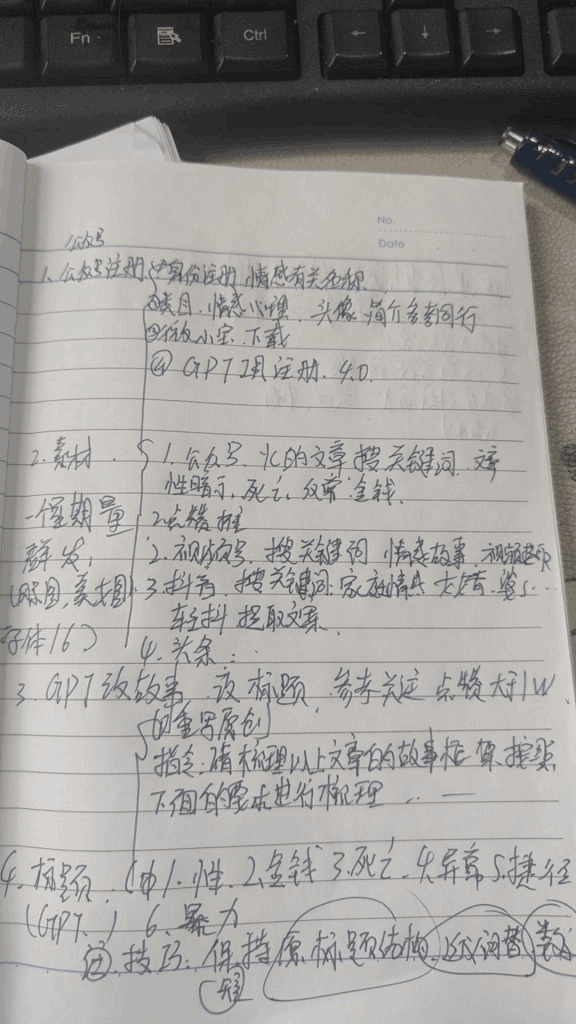 Fn
Ctrl
No.
Date
公众号
1. 公众号注册 ①身份注册 情感有关名称
②类目. 情感心理. 头像 简介参考同行
③ 小宝 下载
④ GPT 注册. 4.0.
2. 素材. 1. 公众号. 的文章 搜关键词.
性暗示, 死亡, 金钱.
一个星期量 2. 点赞 推
群发, 2. 视频号. 搜关键词 情感故事.
3. 抖音. 搜关键词. 家庭情
字体16) 轻抖 提取文案.
4. 头条..
3. GPT改故事. 改标题. 参考关注 点赞大于1W.
重写原创
指令: 请梳理以上文章的故事框架 按照
下面的要求进行梳理 .. —
4. 标题. 1. 性. 2. 金钱 3. 死亡. 4. 异常 5. 捷径
(GPT.) 6. 暴力
技巧: 保持原标题结构.